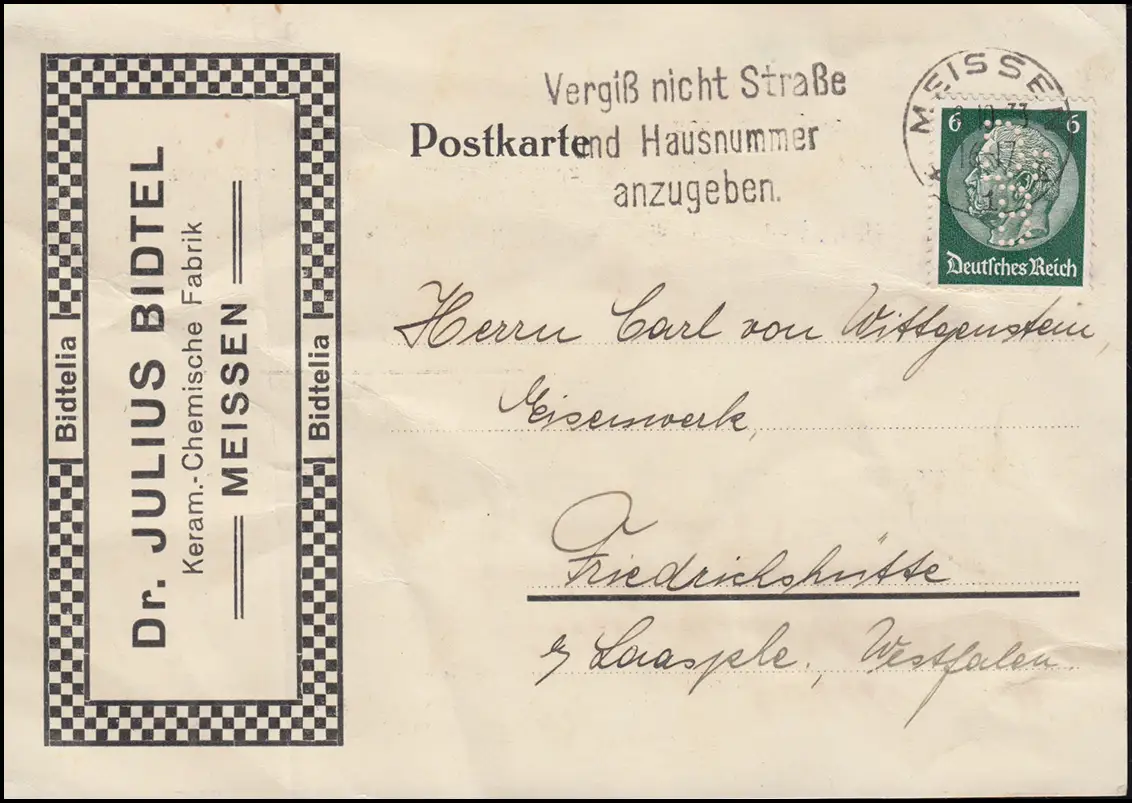 Dr. JULIUS BIDTEL
Keram.-Chemische Fabrik
MEISSEN
Bidtelia
Bidtelia
Vergiß nicht Straße
und Hausnummer
anzugeben.
Postkarte
MEISSEN
10.33
6 6
Deutsches Reich
Herrn Carl von Wittgenstein,
Eisenwerk,
Friedrichshütte
b/ Laasphe, Westfalen.